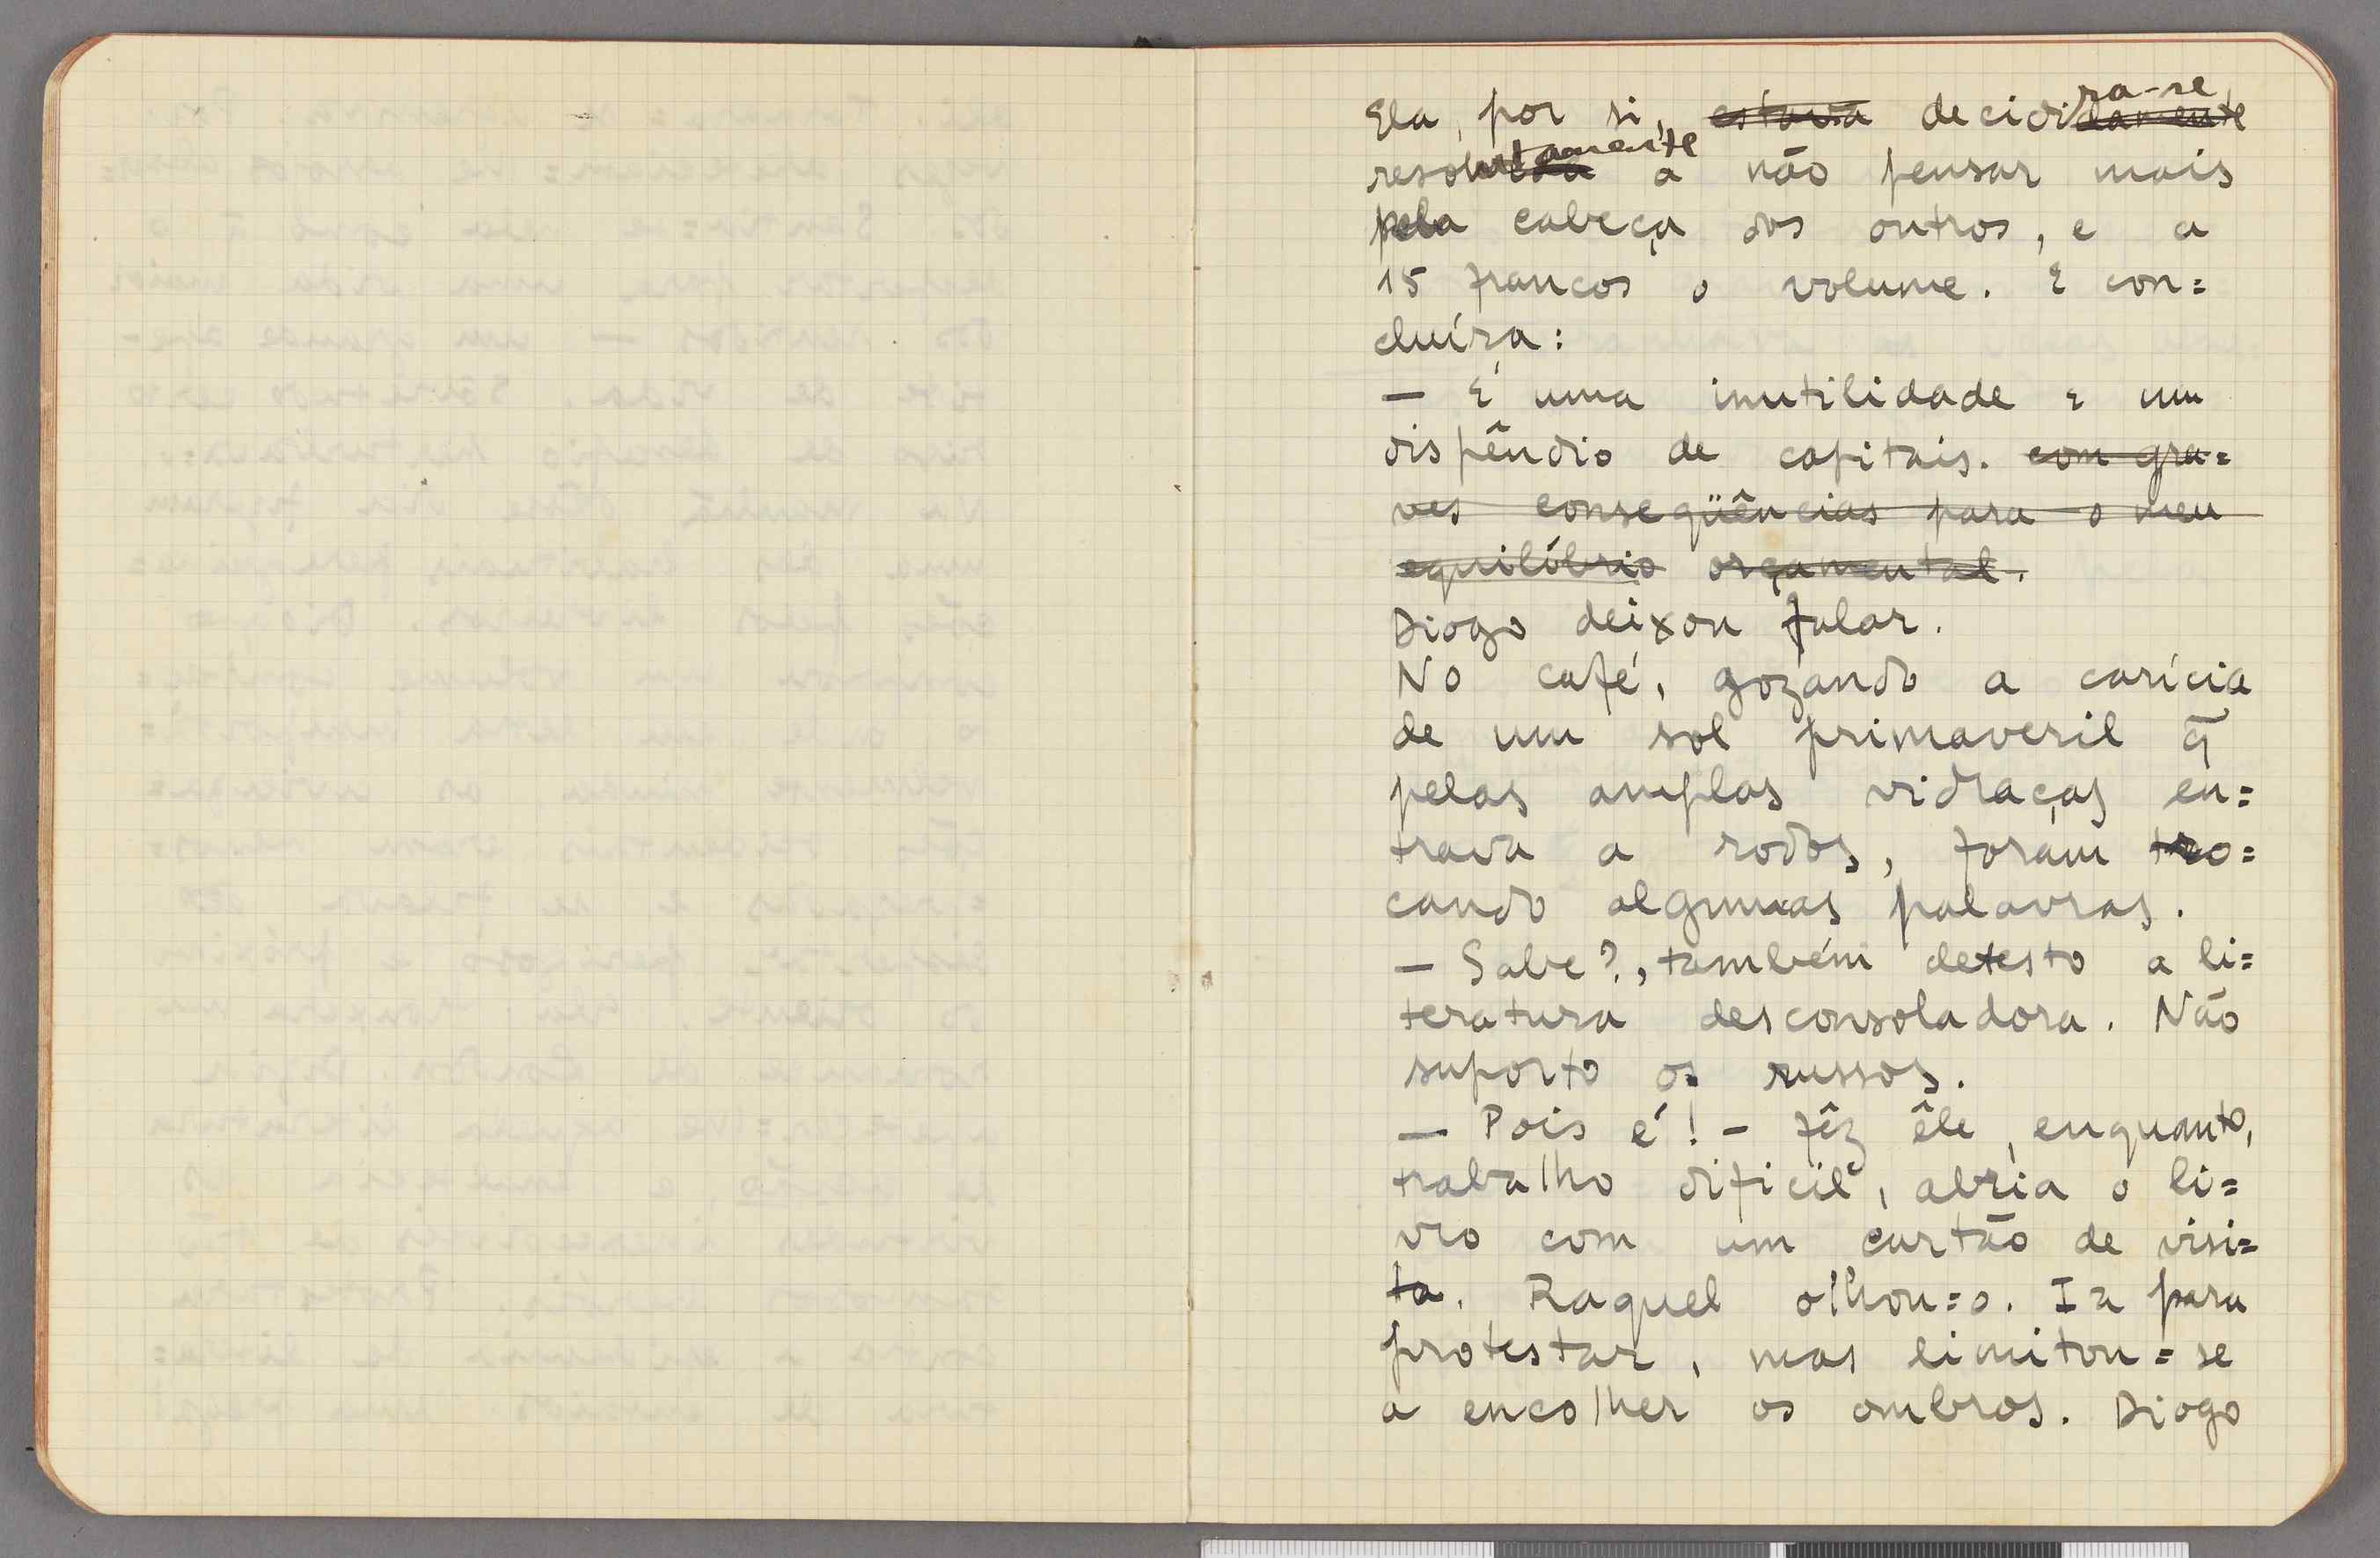 Ela, por si, estava decididamente ra-se
resoluta amente a não pensar mais
pela cabeça dos outros, e a
15 francos o volume. E con=
cluíra:
— É uma inutilidade e um
dispêndio de capitais. com gra=
ves conseqüências para o meu
equilíbrio orçamental.
Diogo deixou falar.
No café, gozando a carícia
de um sol primaveril q̄
pelas amplas vidraças en=
trava a rodos, foram tro=
cando algumas palavras.
— Sabe?, também detesto a li=
teratura desconsoladora. Não
suporto os russos.
— Pois é! — fêz êle, enquanto,
trabalho dificil, abria o li=
vro com um cartão de visi=
ta. Raquel olhou=o. Ia para
protestar, mas limitou=se
a encolher os ombros. Diogo